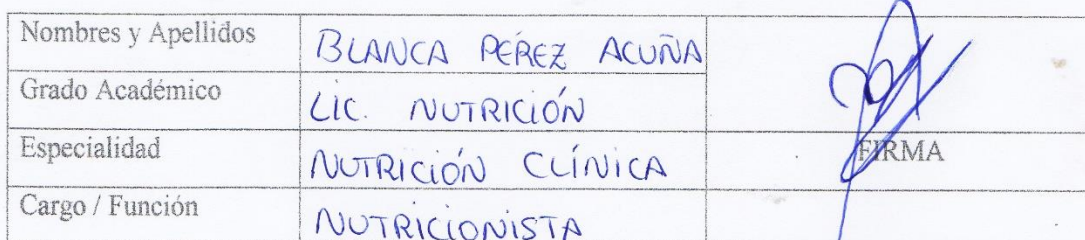 Nombres y Apellidos BLANCA PÉREZ ACUÑA
Grado Académico LIC. NUTRICIÓN
Especialidad NUTRICIÓN CLÍNICA FIRMA
Cargo / Función NUTRICIONISTA